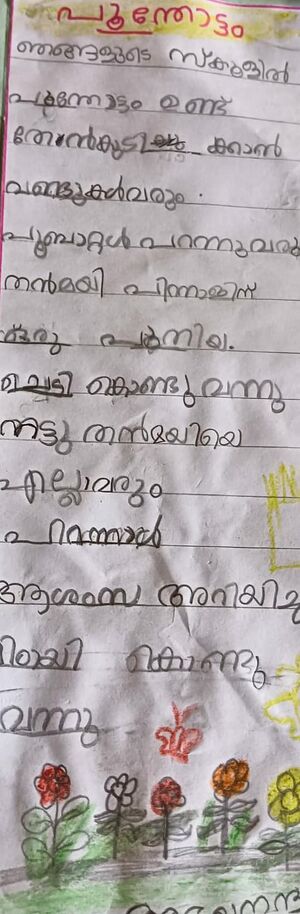 പൂന്തോട്ടം
ഞങ്ങളുടെ സ്കൂളിൽ
പൂന്തോട്ടം ഉണ്ട്
തേൻകുടി ക്കാൻ
വണ്ടുകൾവരും.
പൂമ്പാറ്റൾ പറന്നുവരു
തൻമയി പിറന്നാളിന്
ഒരു പനിയ.
ചെടി കൊണ്ടു വന്നു
നട്ടു തൻമയിയെ
എല്ലാവരും
പിറന്നാൾ
ആശംസ അറിയിച്ചു
മിഠായി കൊണ്ടു
വന്നു